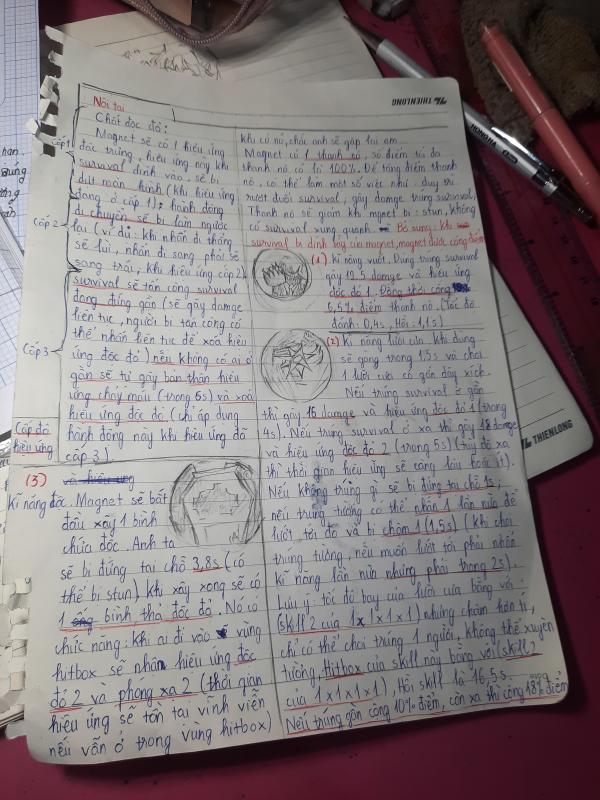 Nội tại
THIENLONG
Chất độc đỏ:
Magnet sẽ có 1 hiệu ứng
đặc trưng, hiệu ứng này khi
survival dính vào, sẽ bị
dứt màn hình (khi hiệu ứng
đang ở cấp 1), hành động
di chuyển sẽ bị làm ngược
lại (ví dụ: khi nhấn đi thẳng
sẽ lùi, nhấn đi sang phải sẽ
sang trái, khi hiệu ứng cấp 2)
survival sẽ tấn công survival
đang đứng gần (sẽ gây damge
liên tục, người bị tấn công có
thể nhấn liên tục để xoá hiệu
ứng độc đỏ) nếu không có ai ở
gần sẽ tự gây bản thân hiệu
ứng chảy máu (trong 6s) và xoá
hiệu ứng độc đỏ (chỉ áp dụng
hành động này khi hiệu ứng đã
cấp 3)
cấp 1
cấp 2
cấp 3
Cấp độ
hiệu ứng
khi có nó, chơi anh sẽ gặp lại em
Magnet có 1 thanh nó, số điểm tối đa
thanh nó có là 100%. Để tăng điểm thanh
nó, có thể làm một số việc như: duy trì
rượt đuổi survival, gây damge trúng survival.
Thanh nó sẽ giảm khi mgnet bị: stun, không
có survival xung quanh. Bổ sung: Khi
survival bị dính bẫy của magnet, magnet được cộng điểm
(1) Kĩ năng vuốt. Dùng trúng survival
gây 19.5 damge và hiệu ứng
độc đỏ 1. Đồng thời cộng
6,5% điểm thanh nó. (Tốc độ
đánh: 0,4s, Hồi: 1,1s)
(2) Kĩ năng lưỡi cưa. Khi dùng
sẽ gồng trong 1.5s và chơi
1 lưỡi cưa có gắn dây xích.
Nếu trúng survival ở gần
thì gây 15 damge và hiệu ứng độc đỏ 1 (trong
4s). Nếu trúng survival ở xa thì gây 18 damge
và hiệu ứng độc đỏ 2 (trong 5s) (tuỳ độ xa
thì thời gian hiệu ứng sẽ càng lâu hoặc ít).
Nếu không trúng gì sẽ bị đứng tại chỗ 1s,
nếu trúng tường có thể nhấn 1 lần nữa để
lướt tới đó và bị chậm 1 (1,5s) (khi chơi
trúng tường, nếu muốn lướt tới phải nhấn
kĩ năng lần nữa nhưng phải trong 2s).
Lưu ý: tốc độ bay của lưỡi cưa bằng với
(skill 2 của 1x1x1x1) nhưng chậm hơn tí,
chỉ có thể chơi trúng 1 người, không thể xuyên
tường, Hitbox của skill này bằng với (skill 2
của 1x1x1x1), Hồi skill là 16,5s.
Nếu trúng gần cộng 10% điểm, còn xa thì cộng 18% điểm
(3)
Kĩ năng độc. Magnet sẽ bắt
đầu xây 1 bình
chứa độc. Anh ta
sẽ bị đứng tại chỗ 3,8s (có
thể bị stun) khi xây xong sẽ có
1 bình thả độc đỏ. Nó có
chức năng: khi ai đi vào vùng
hitbox sẽ nhận hiệu ứng độc
đỏ 2 và phóng xạ 2 (thời gian
hiệu ứng sẽ tồn tại vĩnh viễn
nếu vẫn ở trong vùng hitbox)
THIENLONG